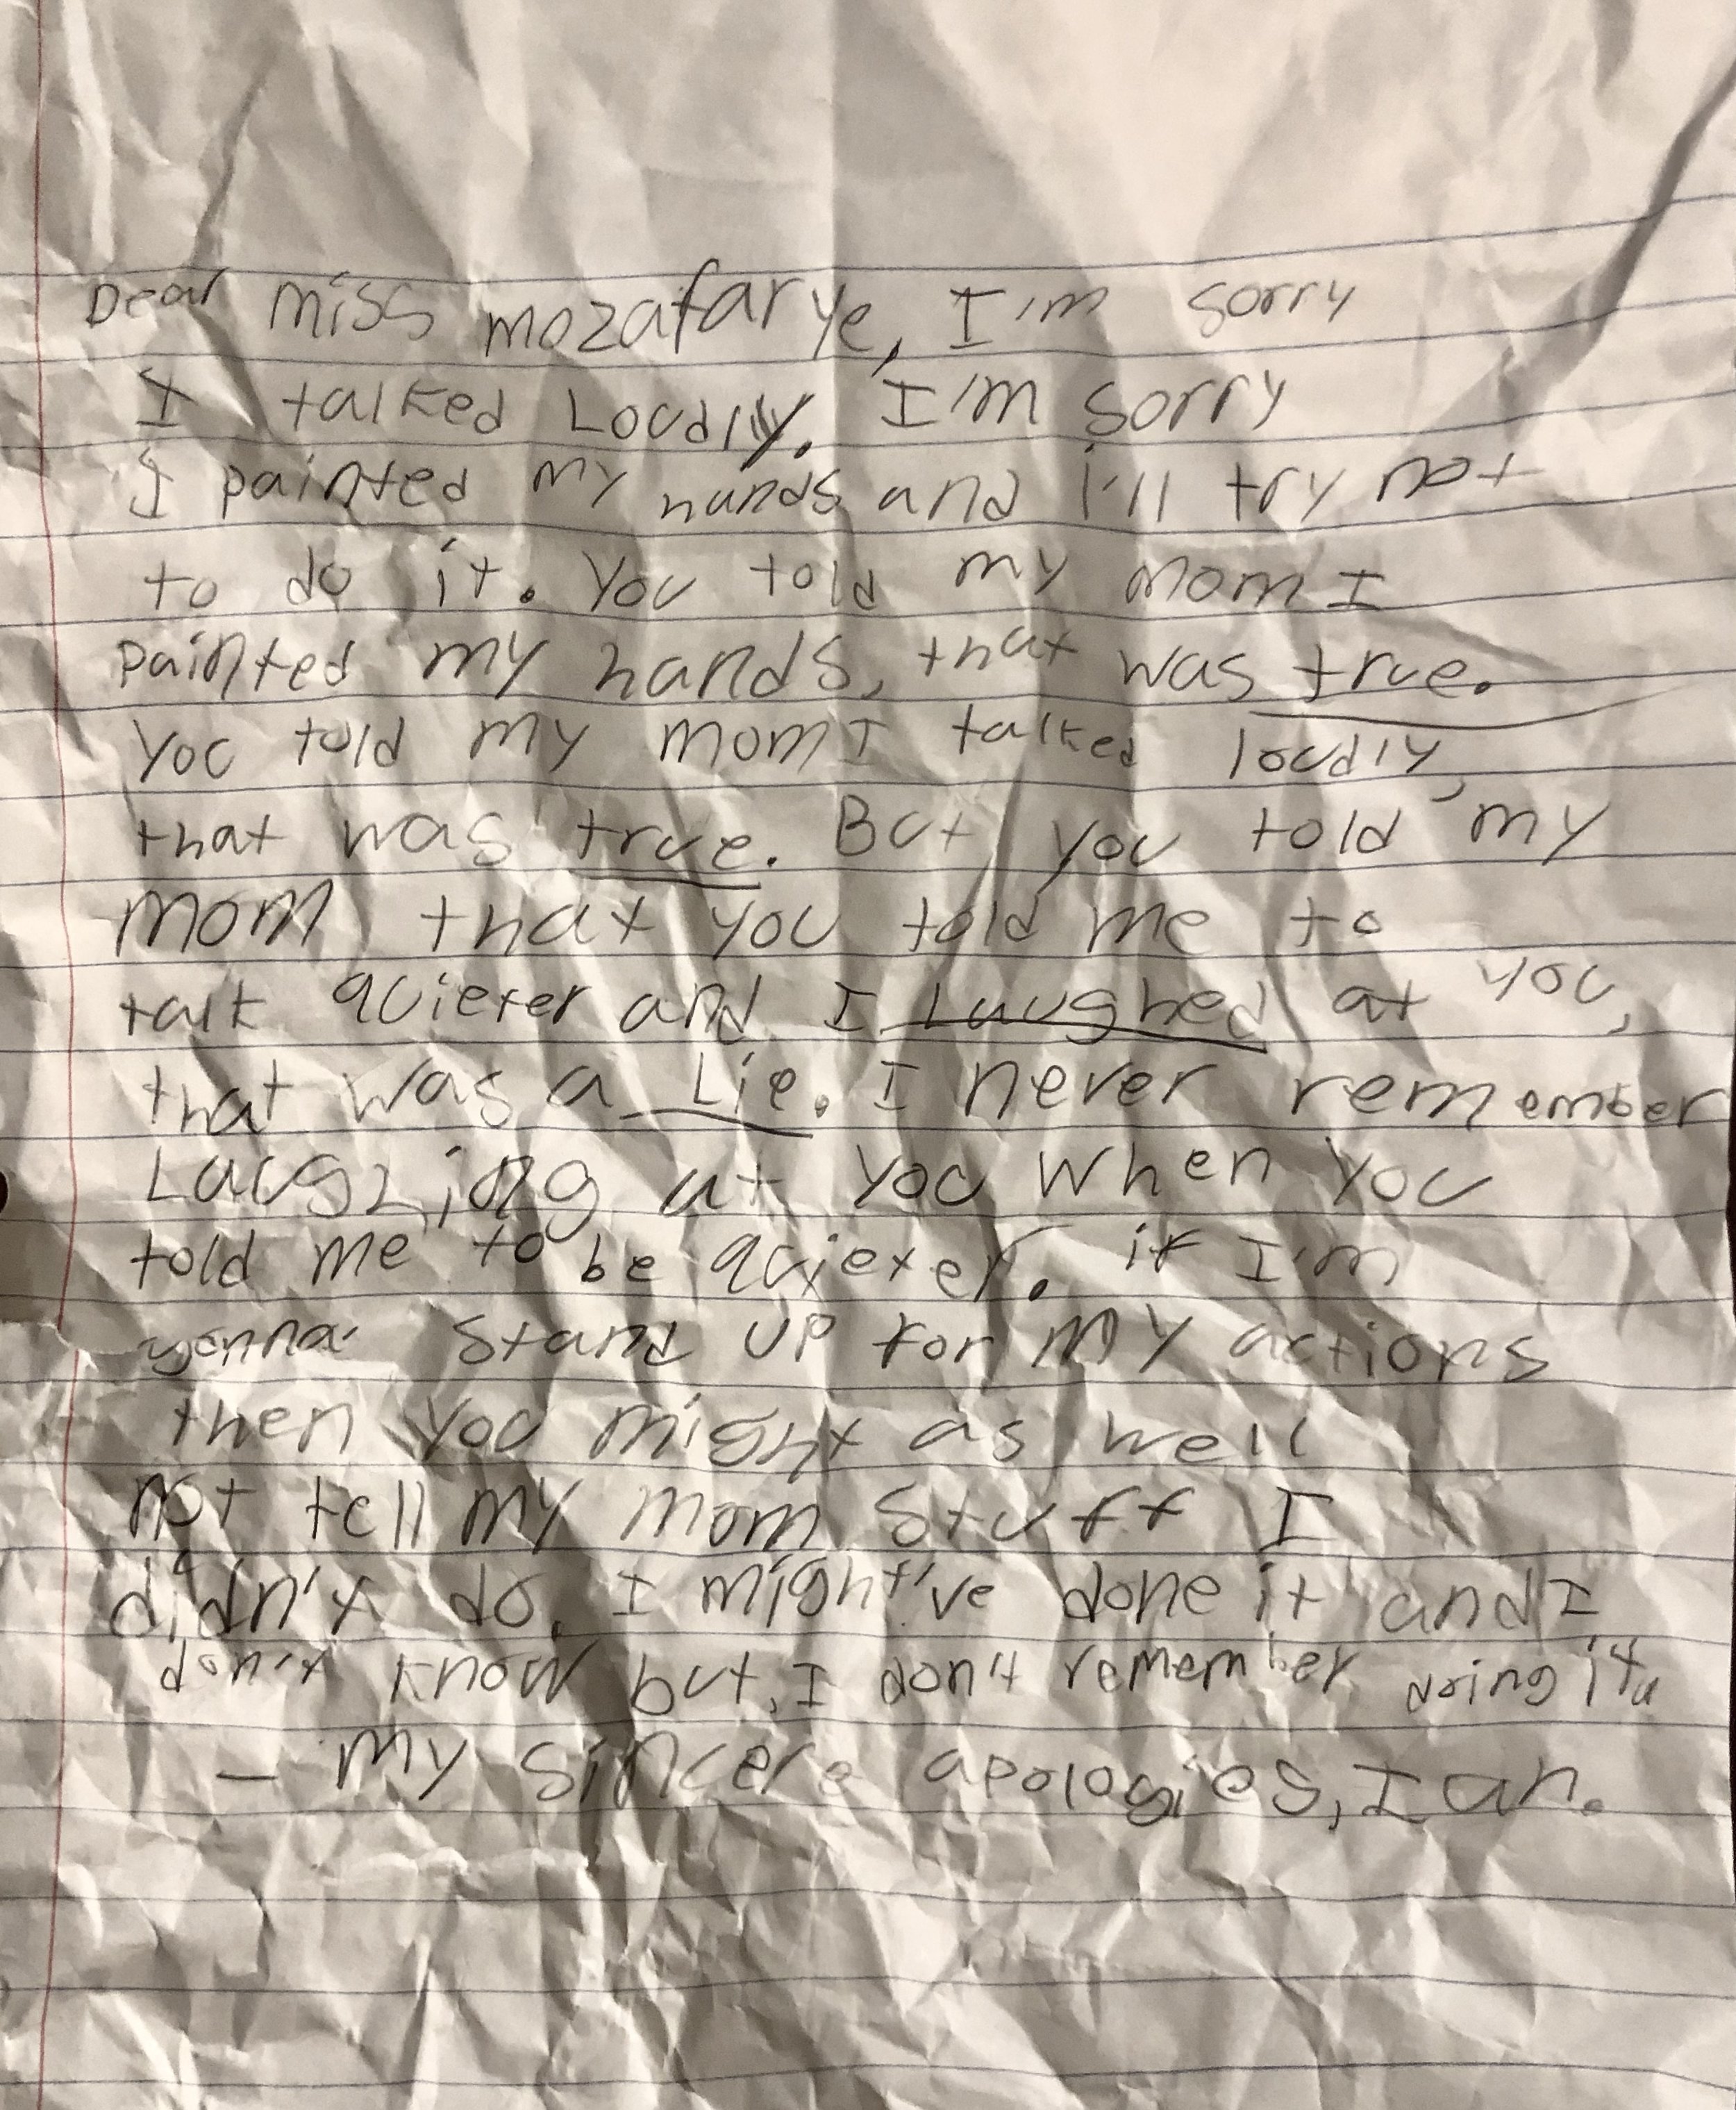 Dear miss mozafarye, I'm sorry
I talked Loudly. I'm sorry
I painted my hands and i'll try not
to do it. You told my mom I
painted my hands, that was true.
You told my mom I talked loudly,
that was true. But you told my
mom that you told me to
talk quieter and I Laughed at you,
that was a Lie. I never remember
Laughing at you when you
told me to be quieter. if I'm
gonna stand up for my actions
then you might as well
not tell my mom stuff I
didn't do. I might've done it and I
don't know but, I don't remember doing it.
- My sincere apologies, Ian.